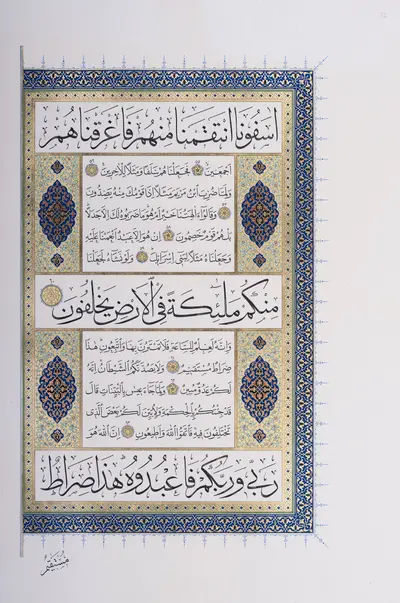 اسَفُونَا انْتَقَمْنَا مِنْهُمْ فَاَغْرَقْنَاهُمْ
اَجْمَعِينَ فَجَعَلْنَاهُمْ سَلَفًا وَمَثَلًا لِلْاٰخِرِينَ
وَلَمَّا ضُرِبَ ابْنُ مَرْيَمَ مَثَلًا اِذَا قَوْمُكَ مِنْهُ يَصِدُّونَ
وَقَالُوا ءَاٰلِهَتُنَا خَيْرٌ اَمْ هُوَ مَا ضَرَبُوهُ لَكَ اِلَّا جَدَلًا
بَلْ هُمْ قَوْمٌ خَصِمُونَ اِنْ هُوَ اِلَّا عَبْدٌ اَنْعَمْنَا عَلَيْهِ
وَجَعَلْنَاهُ مَثَلًا لِبَنِي اِسْرَائِيلَ وَلَوْ نَشَاءُ لَجَعَلْنَا
مِنْكُمْ مَلٰئِكَةً فِي الْاَرْضِ يَخْلُفُونَ
وَاِنَّهُ لَعِلْمٌ لِلسَّاعَةِ فَلَا تَمْتَرُنَّ بِهَا وَاتَّبِعُونِ هٰذَا
صِرَاطٌ مُسْتَقِيمٌ وَلَا يَصُدَّنَّكُمُ الشَّيْطَانُ اِنَّهُ
لَكُمْ عَدُوٌّ مُبِينٌ وَلَمَّا جَاءَ عِيسٰى بِالْبَيِّنَاتِ قَالَ
قَدْ جِئْتُكُمْ بِالْحِكْمَةِ وَلِاُبَيِّنَ لَكُمْ بَعْضَ الَّذِي
تَخْتَلِفُونَ فِيهِ فَاتَّقُوا اللّٰهَ وَاَطِيعُونِ اِنَّ اللّٰهَ هُوَ
رَبِّي وَرَبُّكُمْ فَاعْبُدُوهُ هٰذَا صِرَاطٌ
مُسْتَقِيمٌ